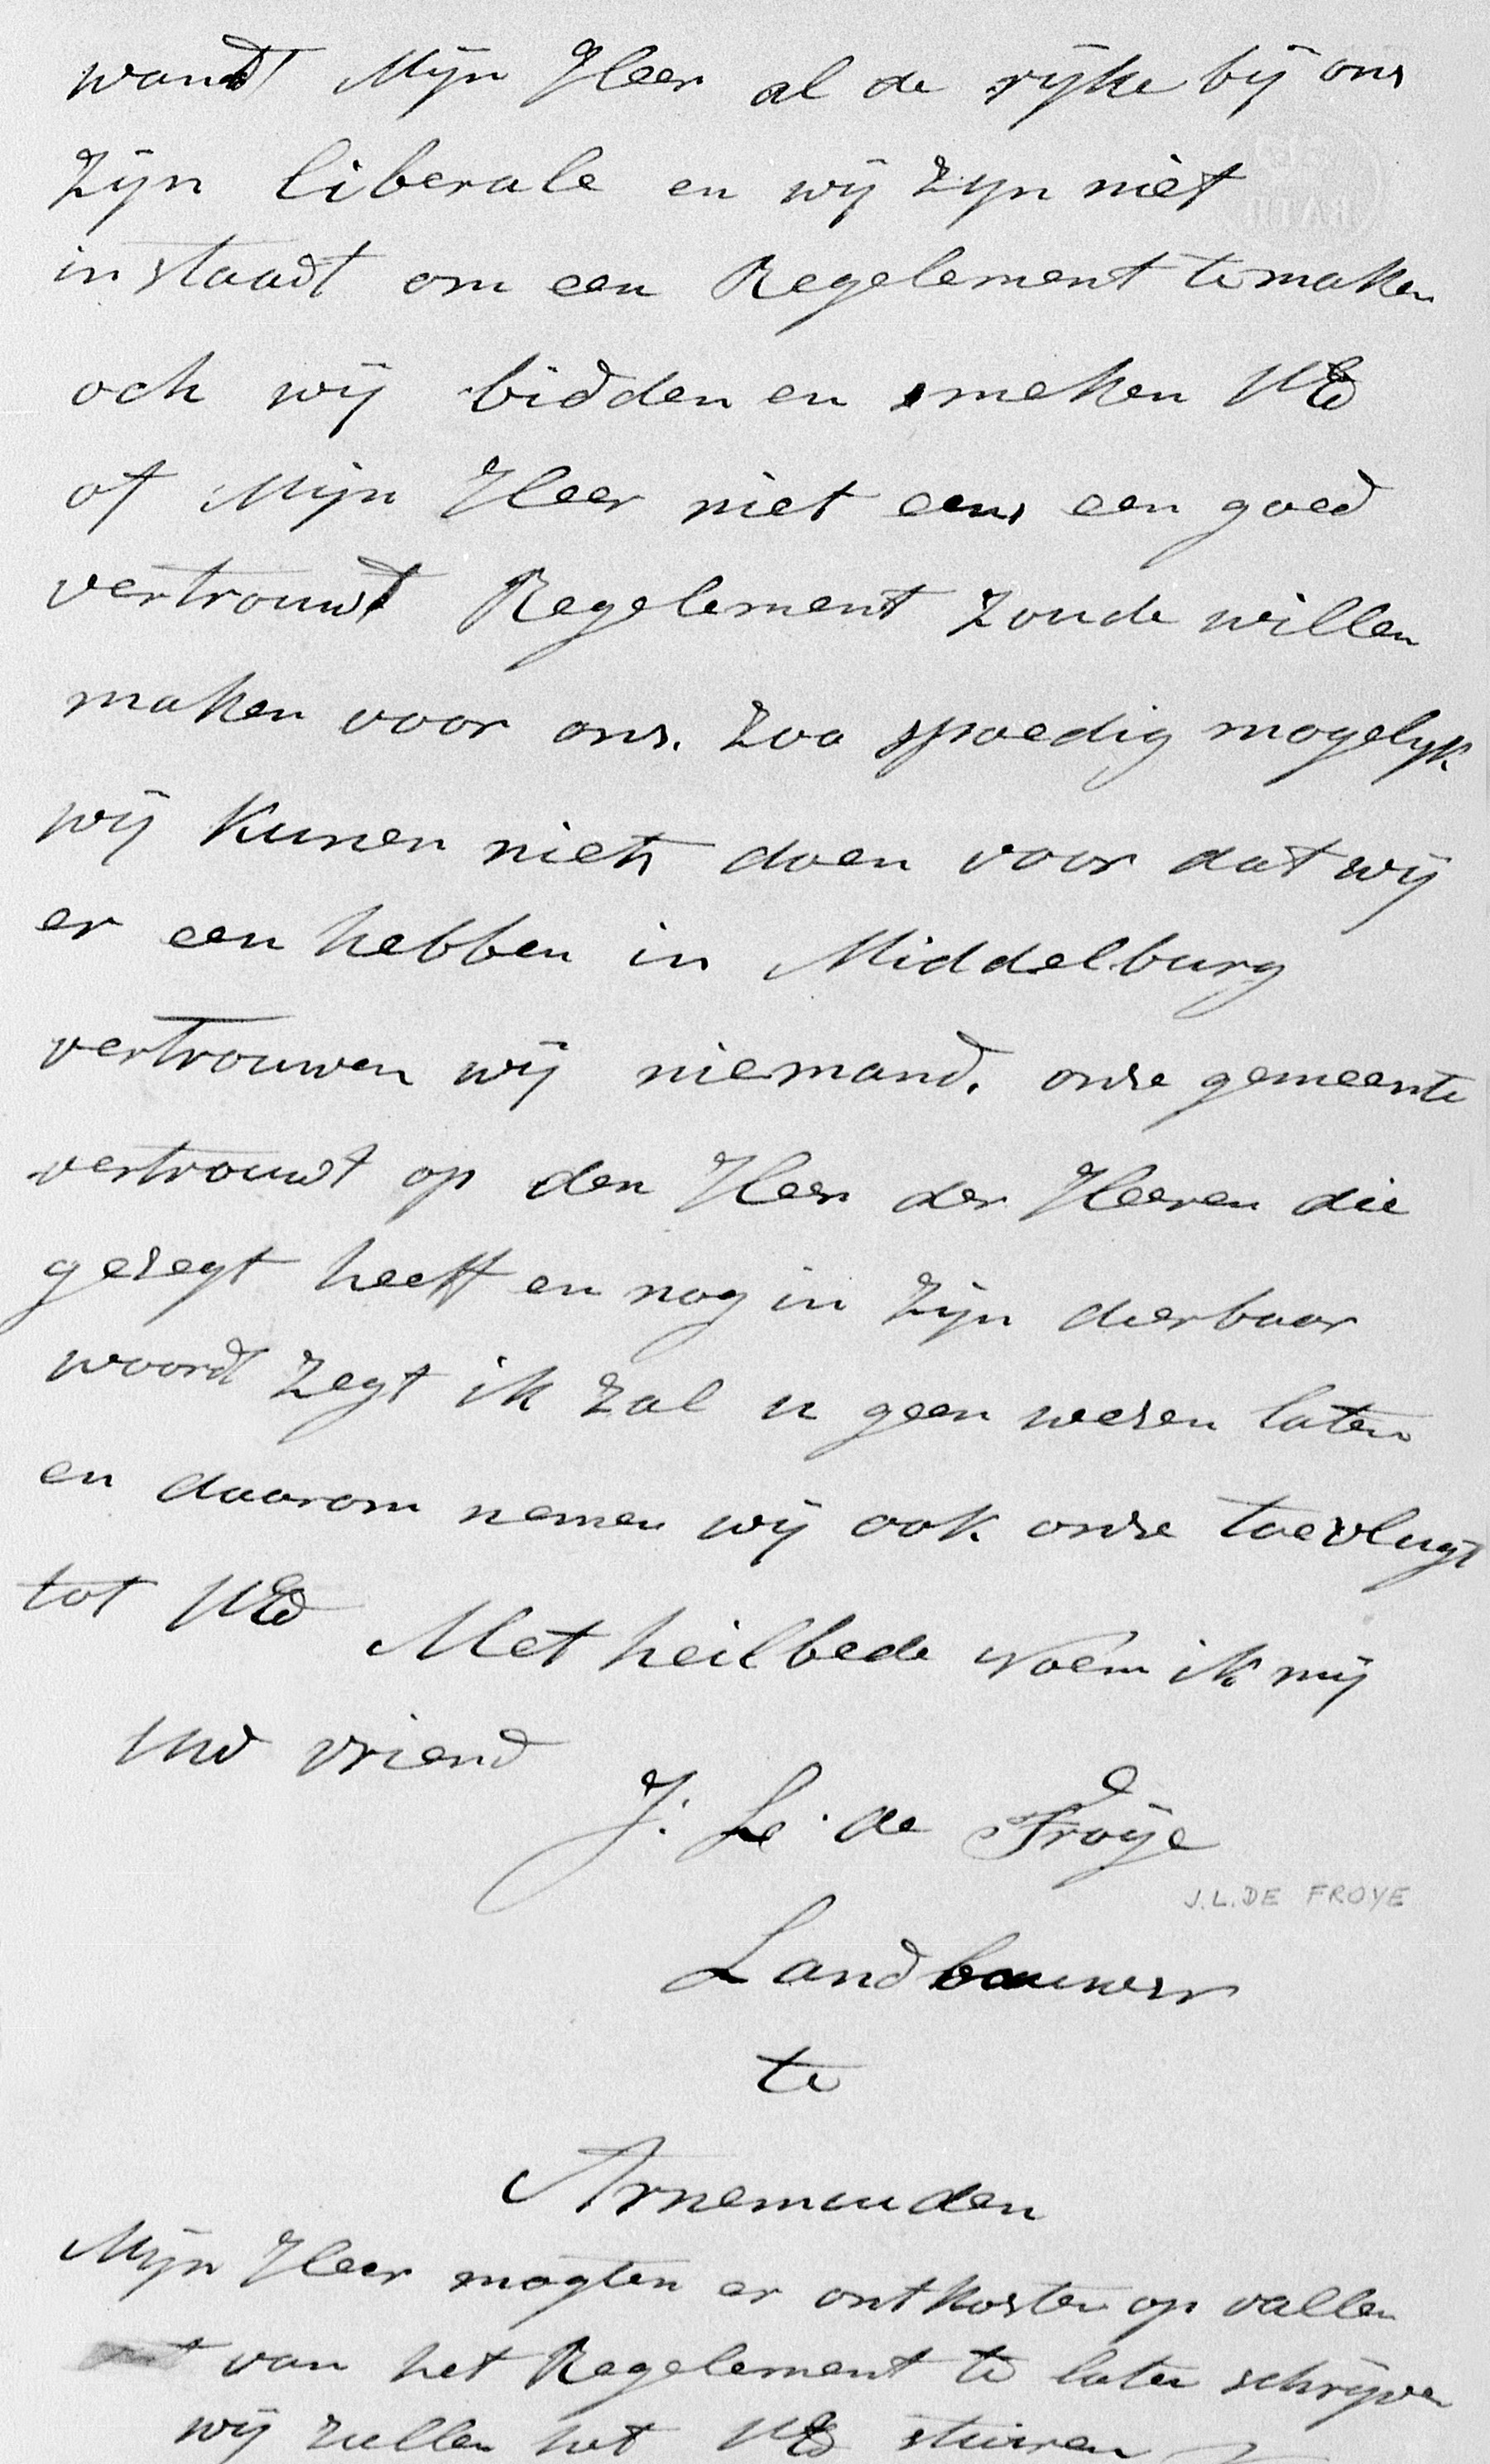 wandt Mijn Heer al de rijke bij ons
zijn liberale en wij zijn niet
in staadt om een Regelement te maken
och wij bidden en smeken UEd
of Mijn Heer niet eens een goed
vertrouwdt Regelement zoude willen
maken voor ons. zoo spoedig mogelyk
wij kunen niets doen voor dat wij
er een hebben in Middelburg
vertrouwen wij niemand. onse gemeente
vertrouwt op den Heer der Heeren die
gesegt heeft en nog in zijn dierbaar
woord zegt ik zal u geen wesen laten
en daarom nemen wij ook onse toevlugt
tot UEd Met heilbede noem ik mij
Uw vriend
J. Le. de Froije
J.L. DE FROYE
Landbouwer
te
Arnemuiden
Mijn Heer mogten er ontkosten op vallen
van het Regelement te laten schrijven
wij zullen het UEd stuiren